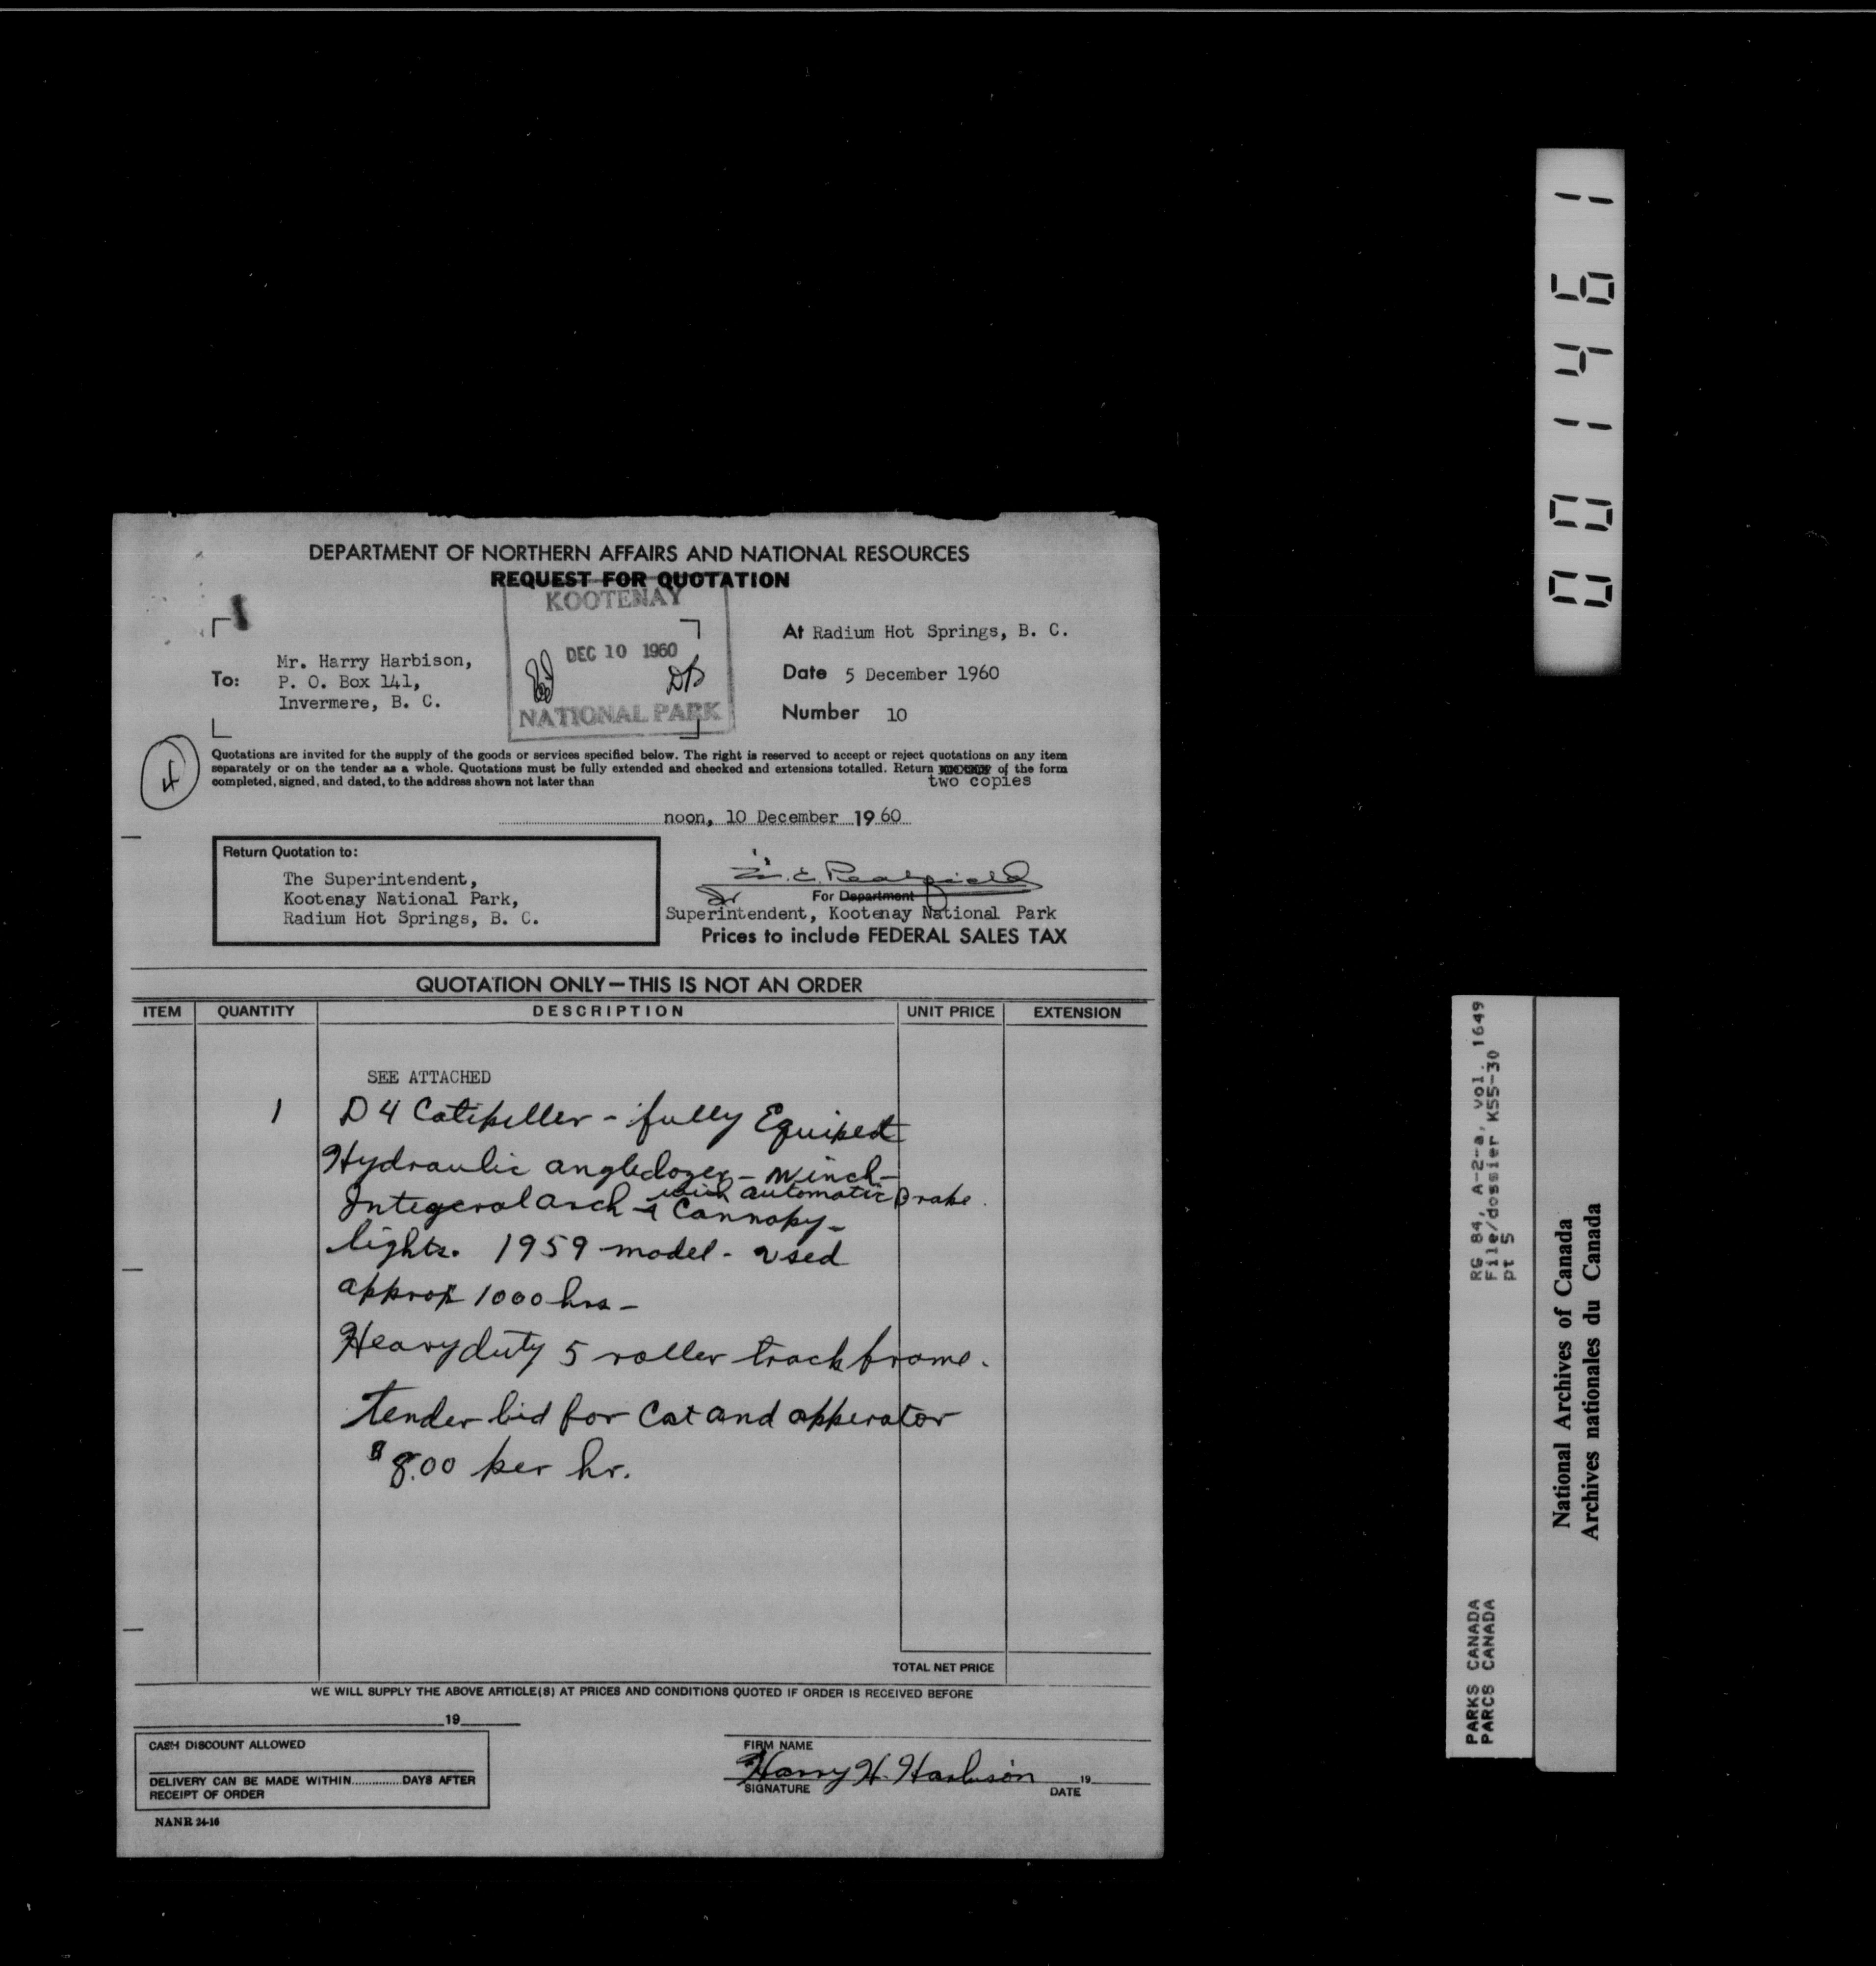 DEPARTMENT OF NORTHERN AFFAIRS AND NATIONAL RESOURCES
REQUEST FOR QUOTATION
KOOTENAY
DEC 10 1960
NATIONAL PARK
To:
Mr. Harry Harbison,
P. O. Box 141,
Invermere, B. C.
At Radium Hot Springs, B. C.
Date 5 December 1960
Number 10
4
Quotations are invited for the supply of the goods or services specified below. The right is reserved to accept or reject quotations on any item
separately or on the tender as a whole. Quotations must be fully extended and checked and extensions totalled. Return of the form
two copies
completed, signed, and dated, to the address shown not later than
noon, 10 December 1960
Return Quotation to:
The Superintendent,
Kootenay National Park,
Radium Hot Springs, B. C.
For Department
Superintendent, Kootenay National Park
Prices to include FEDERAL SALES TAX
QUOTATION ONLY—THIS IS NOT AN ORDER
ITEM QUANTITY DESCRIPTION UNIT PRICE EXTENSION
SEE ATTACHED
1 D4 Catipiller - fully Equiped
Hydraulic angledozer - winch -
with automatic brake.
Integeral arch & Cannopy -
lights. 1959 model - used
approx 1000 hrs -
Heavy duty 5 roller track frame.
tender bid for Cat and opperator
$8.00 per hr.
TOTAL NET PRICE
WE WILL SUPPLY THE ABOVE ARTICLE(S) AT PRICES AND CONDITIONS QUOTED IF ORDER IS RECEIVED BEFORE
19
CASH DISCOUNT ALLOWED
DELIVERY CAN BE MADE WITHIN.............DAYS AFTER
RECEIPT OF ORDER
NANR 24-16
FIRM NAME
Harry H. Harbison 19
SIGNATURE DATE
001461
RG 84, A-2-a, vol. 1649
File/dossier K55-30
pt 5
PARKS CANADA
PARCS CANADA
National Archives of Canada
Archives nationales du Canada